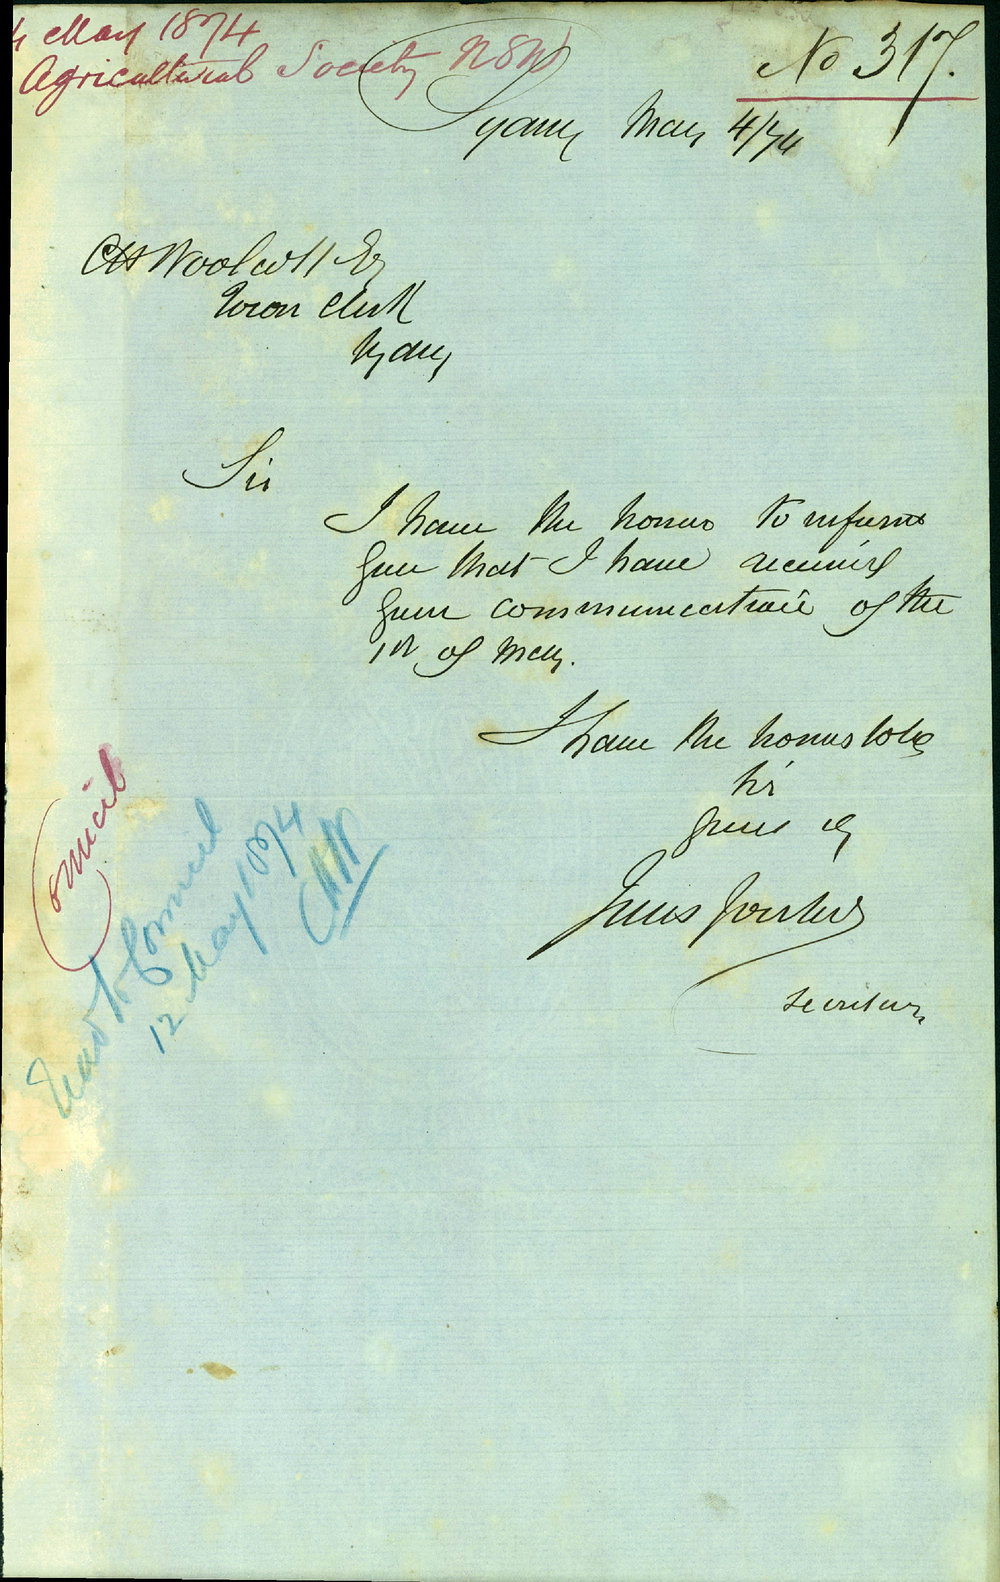 4 May 1874
Agricultural Society NSW
No 317.
Sydney May 4/74
CH Woolcott Esq
Town Clerk
Sydney
Sir
I have the honor to inform
you that I have received
your communication of the
1st of May.
I have the honor to be
Sir
Yours &c
Jules Joubert
Secretary
Council
Read to Council
12 May 1874
CHW